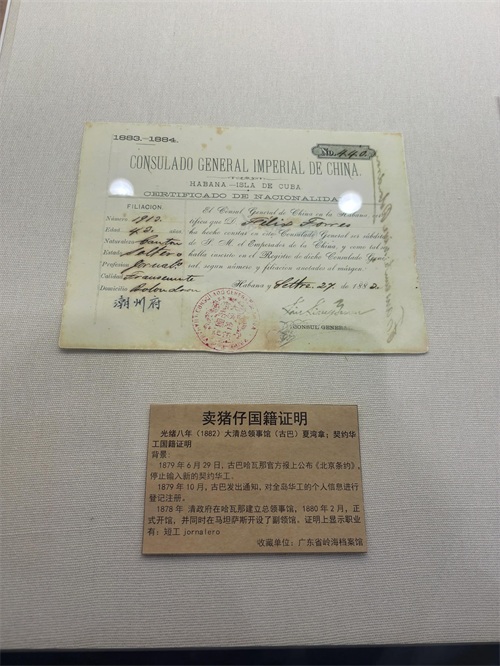 1883.-1884.
No. 440
CONSULADO GENERAL IMPERIAL DE CHINA.
HABANA—ISLA DE CUBA
CERTIFICADO DE NACIONALIDA
FILIACION.
El Consul General de China en la Habana,
tifica que D. Felix Torres
ha hecho constar en este Consulado General ser súbdito
de S. M. el Emperador de la China, y como tal se
halla inscrito en el Registro de dicho Consulado
ral, segun número y filiacion anotados al márgen.
Número 1912
Edad 42
Naturaleza Canton
Estado Soltero
Profesion Jornal
Calidad Transeunte
Domicilio Colon
潮州府
Habana y Setbre. 27 de 1882
CONSUL GENERAL
卖猪仔国籍证明
光绪八年（1882）大清总领事馆（古巴）夏湾拿；契约华
工国籍证明
背景：
1879年6月29日，古巴哈瓦那官方报上公布《北京条约》，
停止输入新的契约华工。
1879年10月，古巴发出通知，对全岛华工的个人信息进行
登记注册。
1878年 清政府在哈瓦那建立总领事馆，1880年2月，正
式开馆，并同时在马坦萨斯开设了副领馆。证明上显示职业
有：短工 jornalero
收藏单位：广东省岭海档案馆